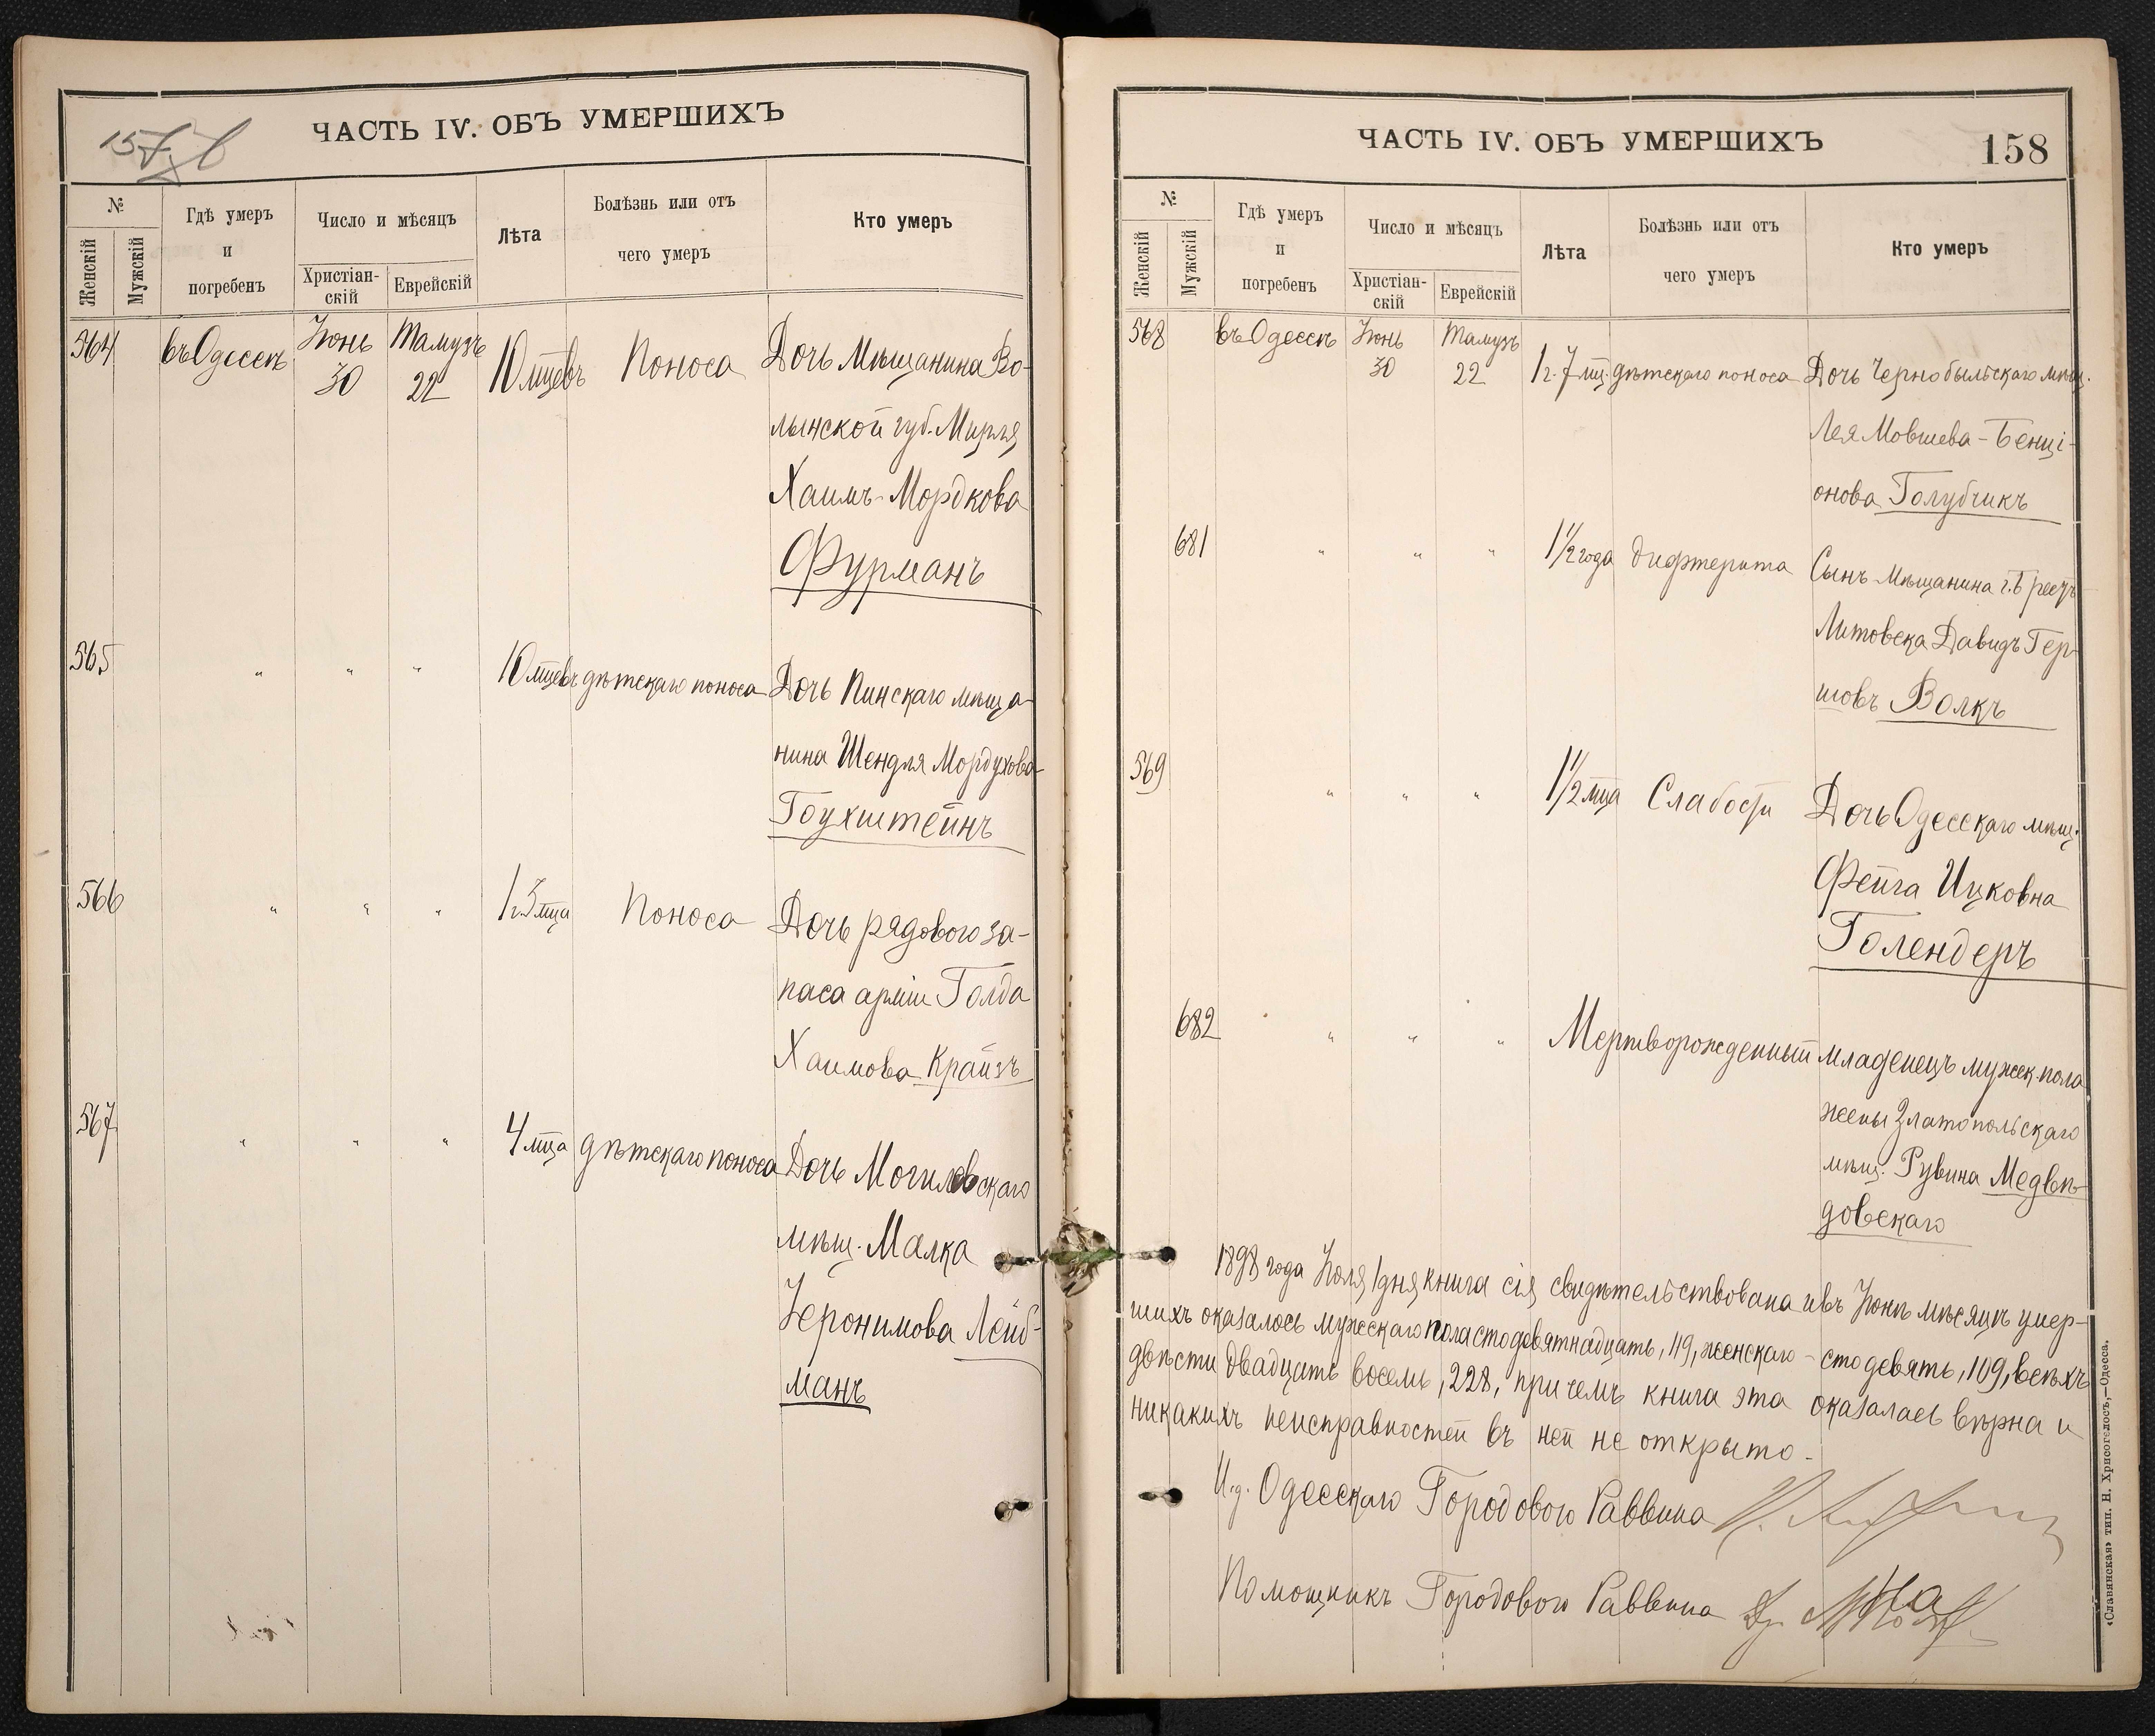 157
ЧАСТЬ IV. ОБЪ УМЕРШИХЪ
№
Женскій
Мужскій
Гдѣ умеръ
и
погребенъ
Число и мѣсяцъ
Христіан-
скій
Еврейскій
Лѣта
Болѣзнь или отъ
чего умеръ
Кто умеръ
564 въ Одессѣ Іюнь 30 Тамузъ 22 10 мцевъ Поноса Дочь Мѣщанина Во-
лынской губ. Мирля
Хаимъ-Мордкова
Фурманъ
565 " " " 10 мцевъ дѣтскаго поноса Дочь Пинскаго мѣща-
нина Шендля Мордухова
Гоухштейнъ
566 " " " 1 г. 3 мца Поноса Дочь рядового за-
паса арміи Голда
Хаимова Крайзъ
567 " " " 4 мца дѣтскаго поноса Дочь Могилевскаго
мѣщ. Малка
Іеронимова Лейб-
манъ
ЧАСТЬ IV. ОБЪ УМЕРШИХЪ
158
№
Женскій
Мужскій
Гдѣ умеръ
и
погребенъ
Число и мѣсяцъ
Христіан-
скій
Еврейскій
Лѣта
Болѣзнь или отъ
чего умеръ
Кто умеръ
568 въ Одессѣ Іюнь 30 Тамузъ 22 1 г. 7 мц. дѣтскаго поноса Дочь Чернобыльскаго мѣщ.
Лея Мовшева-Бенці-
онова Голубчикъ
681 " " " 1 1/2 года дифтерита Сынъ Мѣщанина г. Брестъ
Литовска Давидъ Гер-
шовъ Волкъ
569 " " " 1 1/2 мца Слабости Дочь Одесскаго мѣщ.
Фейга Ицковна
Голендеръ
682 " " " Мертворожденный младенецъ мужск. пола
жены Златопольскаго
мѣщ. Рувина Медвѣ-
довскаго
1898 года Іюля 1 дня книга сія свидѣтельствована и въ Іюнѣ мѣсяцѣ умер-
шихъ оказалось мужскаго пола сто девятнадцать, 119, женскаго - сто девять, 109, всѣхъ
двѣсти двадцать восемь, 228, при чемъ книга эта оказалась вѣрна и
никакихъ неисправностей въ ней не открыто.
И.д. Одесскаго Городового Раввина
Помощникъ Городового Раввина
«Славянская» тип. Н. Хрисогелосъ,—Одесса.